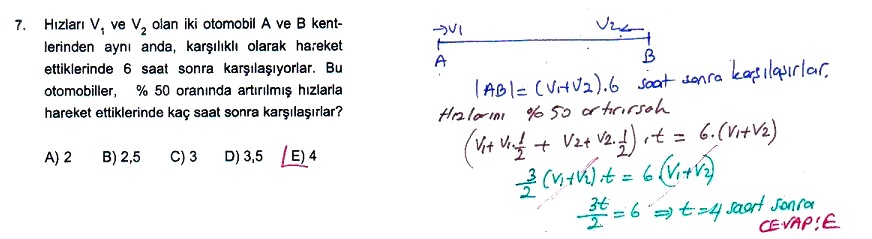 7. Hızları V₁ ve V₂ olan iki otomobil A ve B kent-
lerinden aynı anda, karşılıklı olarak hareket
ettiklerinde 6 saat sonra karşılaşıyorlar. Bu
otomobiller, % 50 oranında artırılmış hızlarla
hareket ettiklerinde kaç saat sonra karşılaşırlar?
A) 2 B) 2,5 C) 3 D) 3,5 E) 4
→V1 V2←
A B
|AB| = (V1+V2).6 saat sonra karşılaşırlar.
Hızlarını % 50 artırırsak
(V1+V1.1/2 + V2+V2.1/2).t = 6.(V1+V2)
3/2 (V1+V2).t = 6(V1+V2)
3t/2 = 6 ⇒ t=4 saat sonra
CEVAP:E